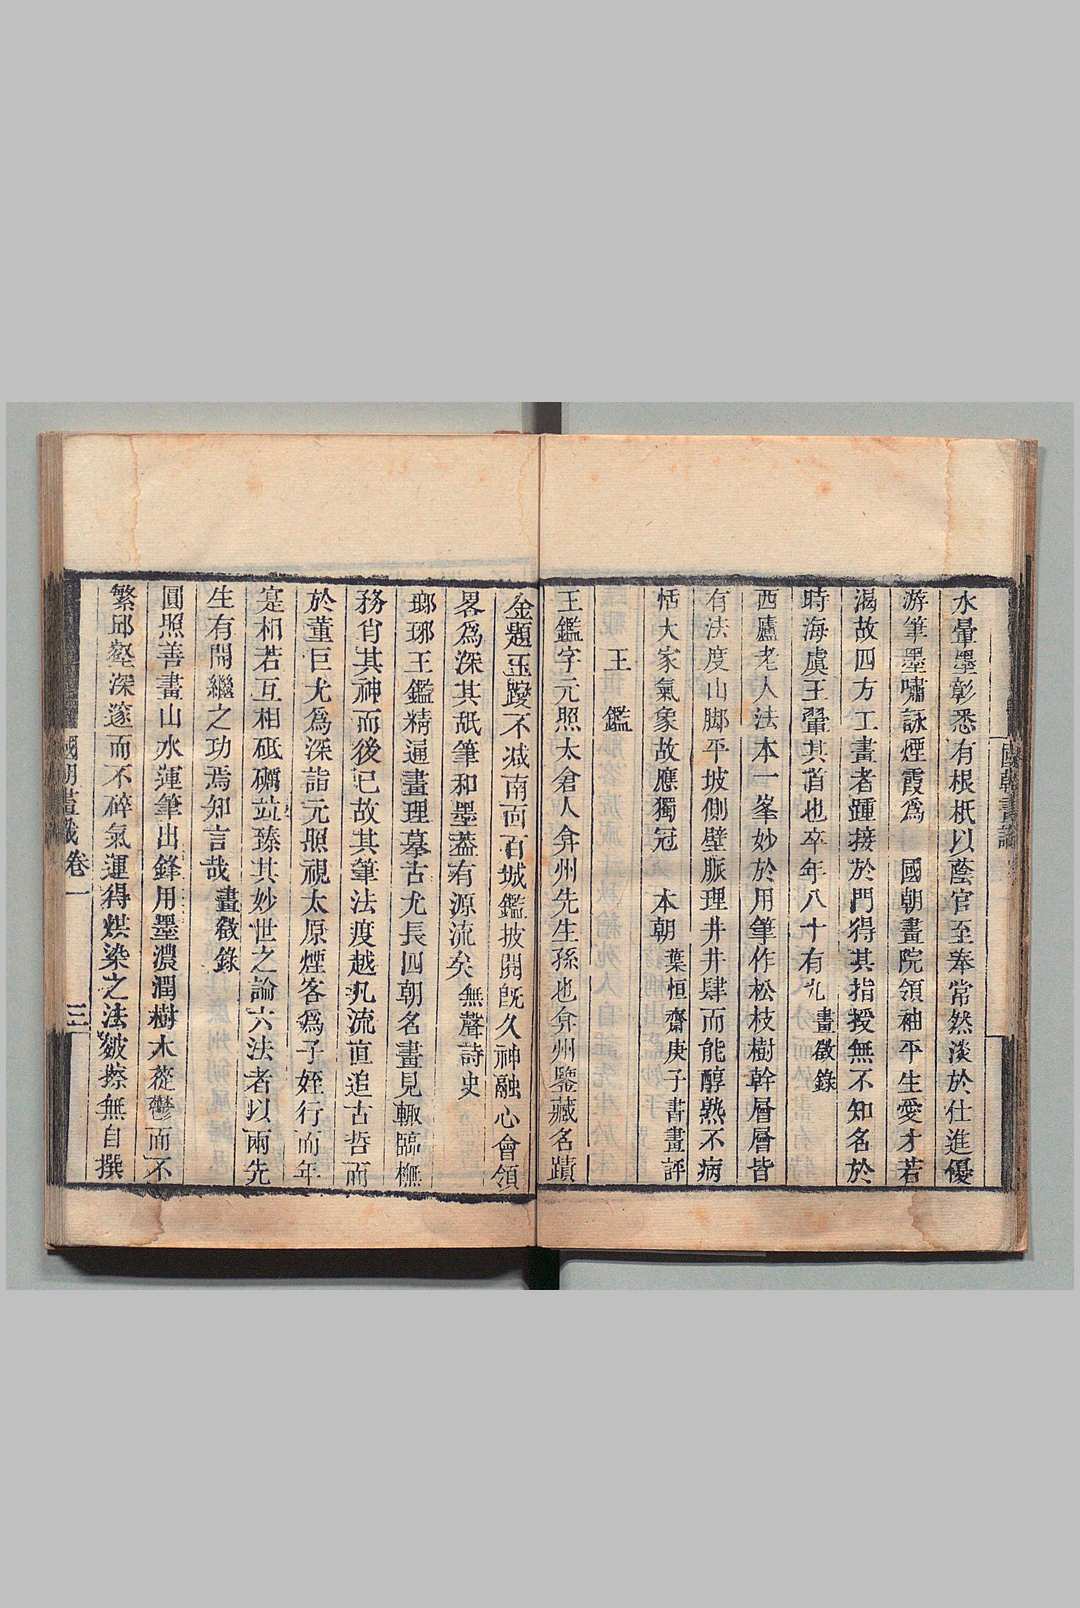 水暈墨彰悉有根柢以蔭官至奉常然淡於仕進優
游筆墨嘯詠煙霞爲 國朝畫院領袖平生愛才若
渴故四方工畫者踵接於門得其指授無不知名於
時海虞王翬其首也卒年八十有九 畫徵錄
西廬老人法本一峯妙於用筆作松枝樹幹層層皆
有法度山脚平坡側壁脈理井井肆而能醇熟不病
恬大家氣象故應獨冠 本朝 葉恒齋庚子書畫評
王鑑
王鑑字元照太倉人弇州先生孫也弇州鑒藏名蹟
金題玉躞不减南面百城鑑披閱既久神融心會領
畧爲深其舐筆和墨葢有源流矣 無聲詩史
瑯琊王鑑精通畫理摹古尤長四朝名畫見輒臨橅
務肖其神而後已故其筆法度越凡流直追古哲而
於董巨尤爲深詣元照視太原煙客爲子姪行而年
寔相若互相砥礪竝臻其妙世之論六法者以兩先
生有開繼之功焉知言哉 畫徵錄
圓照善畫山水運筆出鋒用墨濃潤樹木蓯鬱而不
繁邱壑深邃而不碎氣運得烘染之法皴擦無自撰
國朝畫識卷一 三